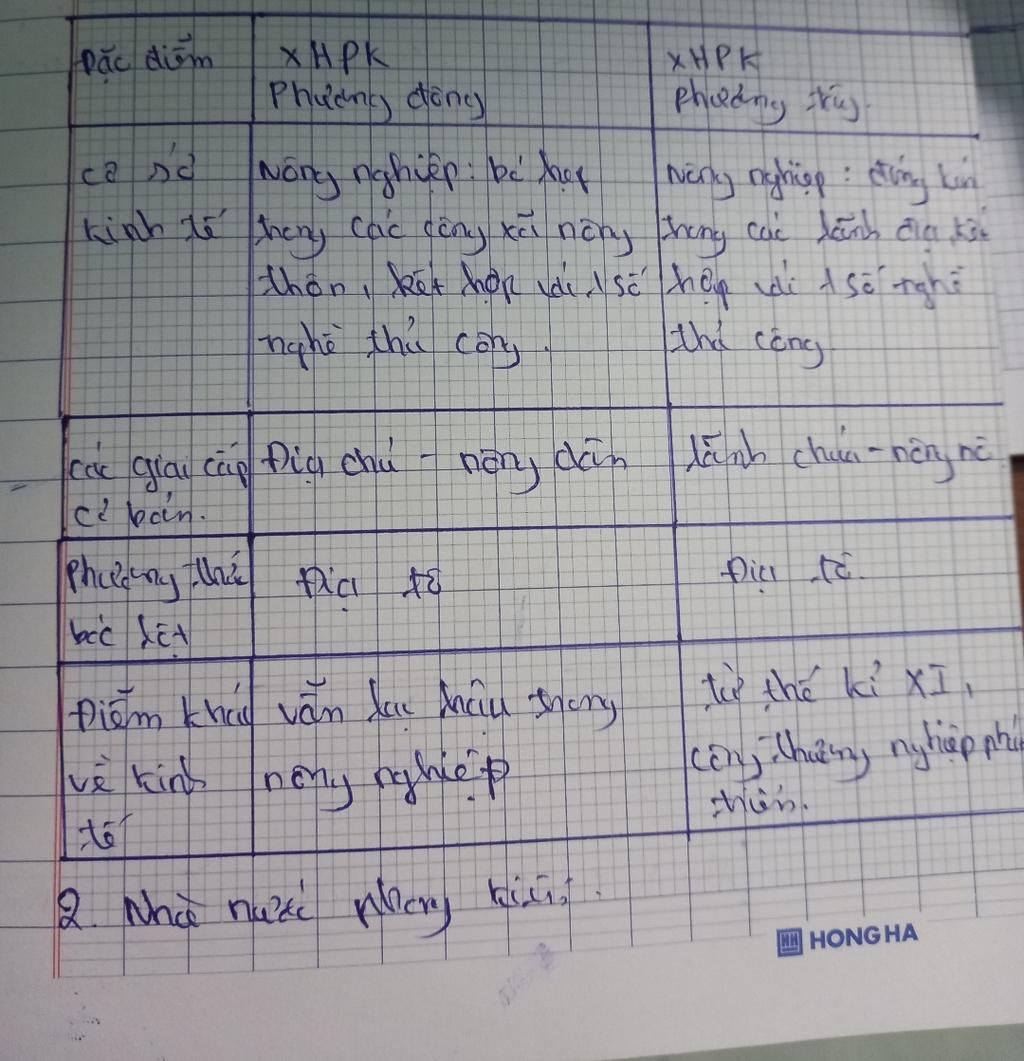 Đặc điểm
XHPK
Phương đông
XHPK
Phương tây.
Cơ sở
kinh tế
Nông nghiệp: bó hẹp
trong các công xã nông
thôn, kết hợp với 1 số
nghề thủ công.
Nông nghiệp: đóng kín
trong các lãnh địa kết
hợp với 1 số nghề
thủ công
các giai cấp
cơ bản.
Địa chủ - nông dân
lãnh chúa - nông nô
Phương thức
bóc lột
Địa tô
Địa tô.
Điểm khác
về kinh
tế
vẫn lạc hậu trong
nông nghiệp
từ thế kỉ XI,
công thương nghiệp phát
triển.
2. Nhà nước phong kiến.
HONG HA